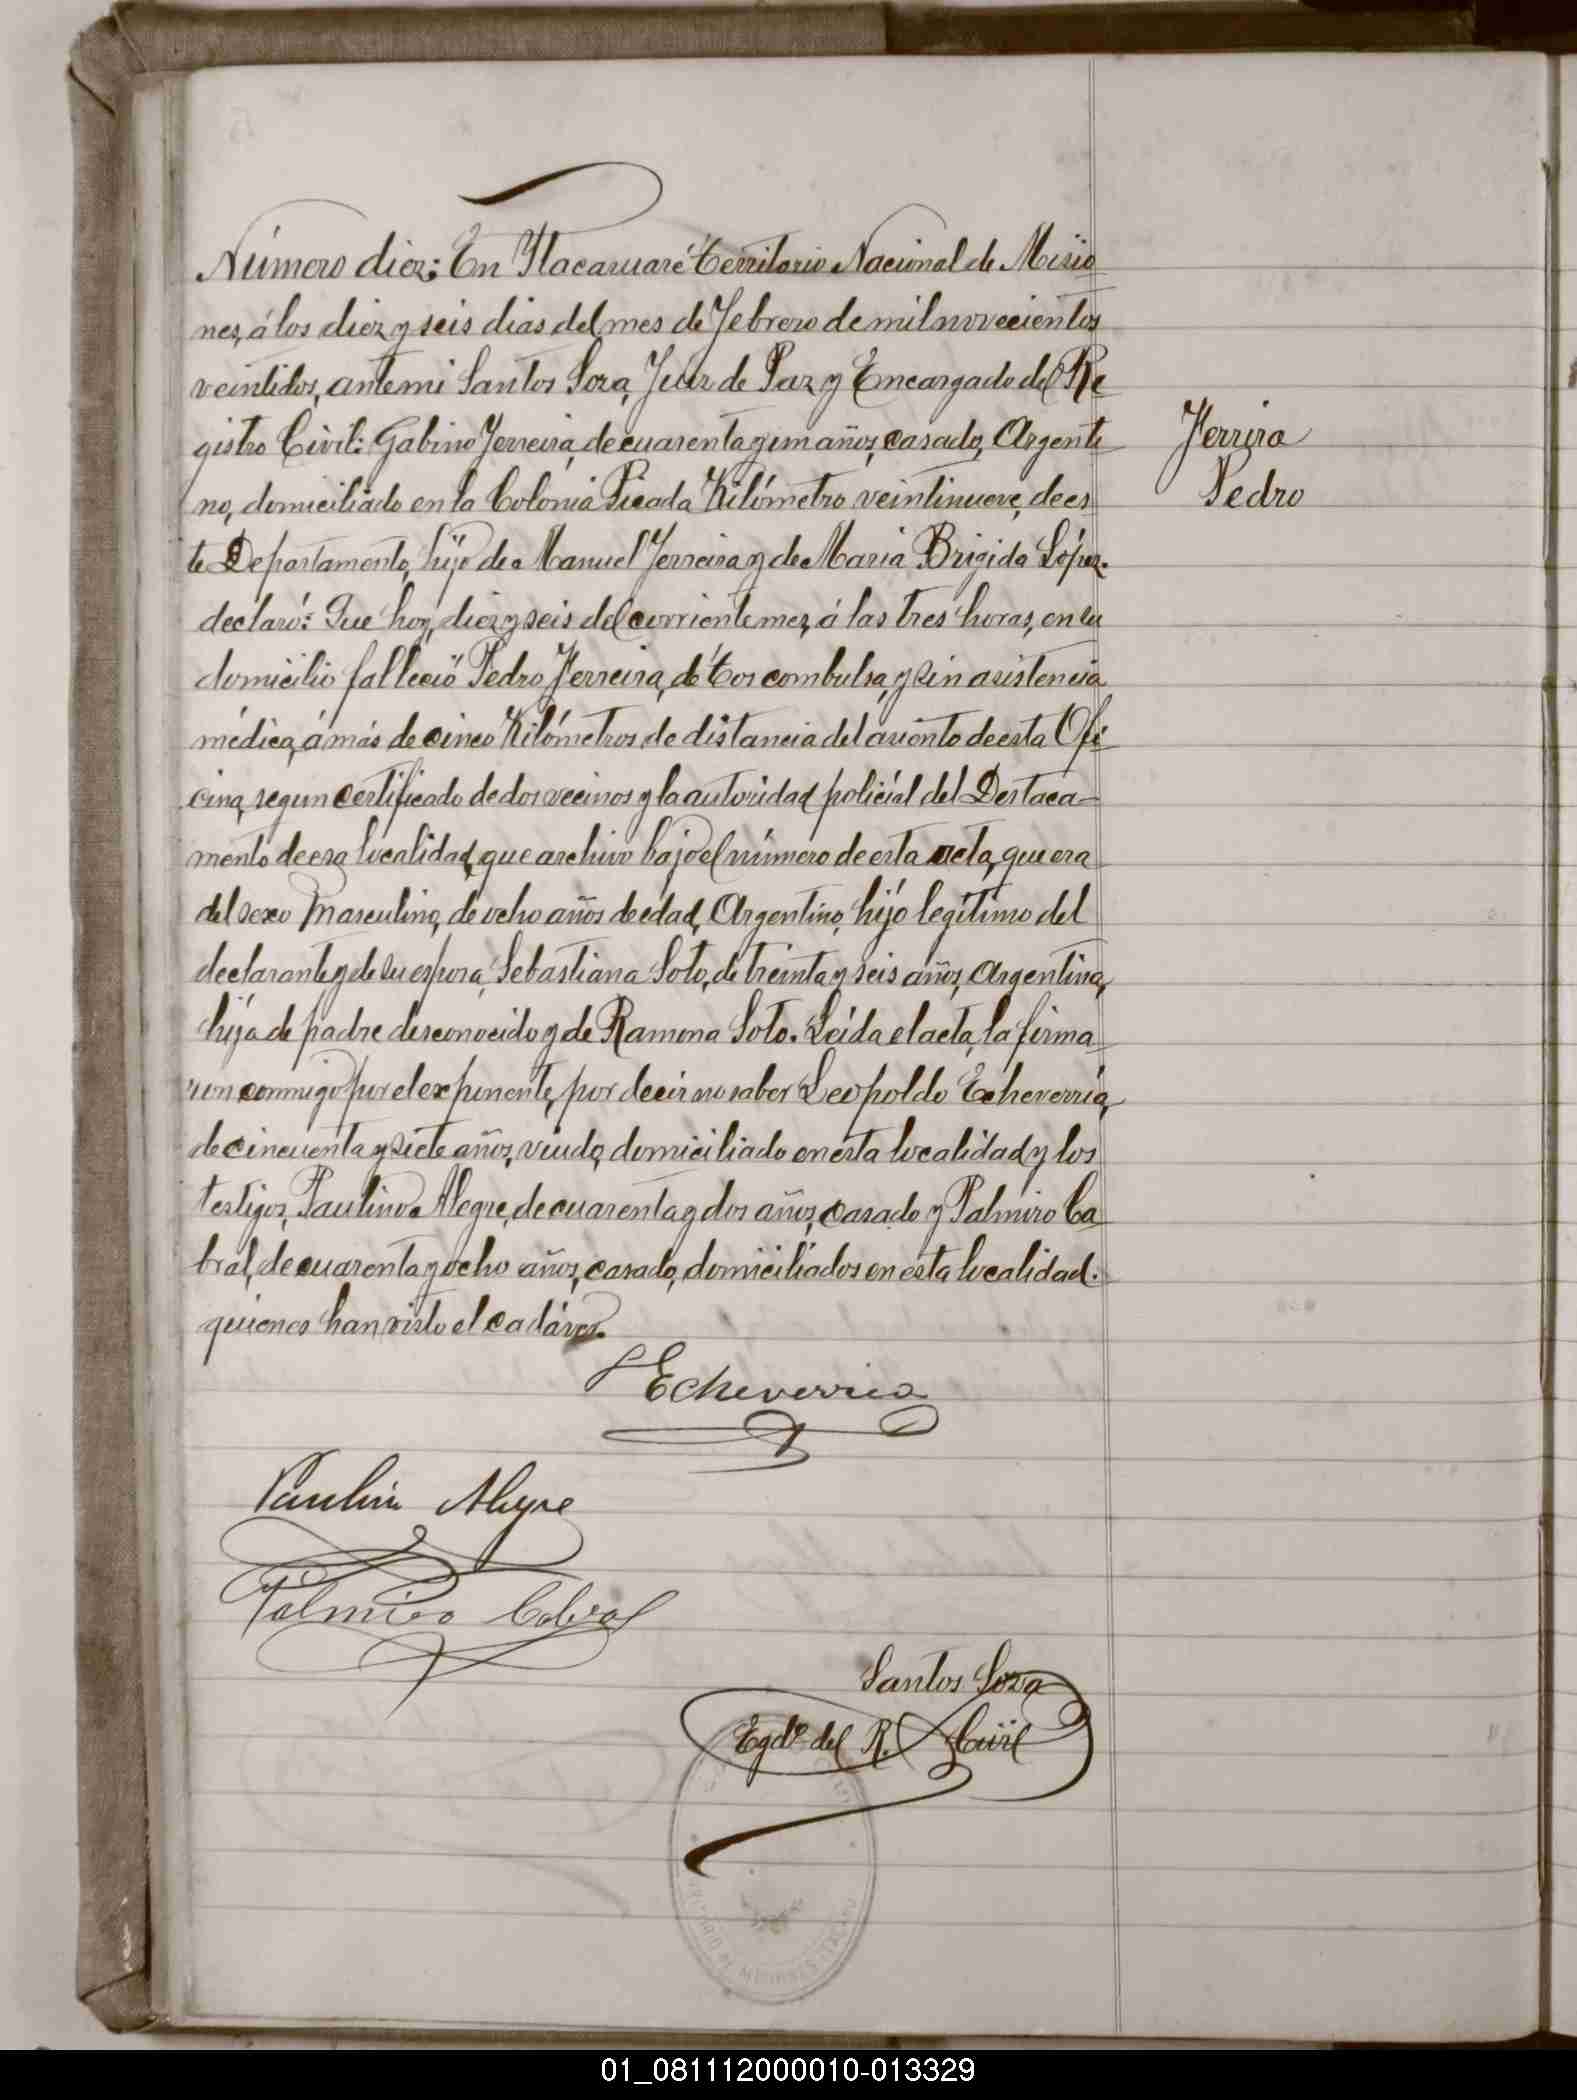 Número diez: En Itacaruaré Territorio Nacional de Misio
nes, á los diez y seis dias del mes de Febrero de mil novecientos
veintidos, ante mi Santos Soza, Juez de Paz y Encargado del Re
gistro Civil: Gabino Ferreira, de cuarenta y un años, casado, Argenti
no, domiciliado en la Colonia Picada Kilómetro veintinueve, de es
te Departamento, hijo de Manuel Ferreira y de Maria Brigida López.
declaró: Que hoy, diez y seis del corriente mez, á las tres horas, en su
domicilio falleció Pedro Ferreira, de tos combulsa, y sin asistencia
médica, á más de cinco Kilómetros de distancia del asiento de esta Ofi
cina, segun certificado de dos vecinos y la autoridad policial del Destaca-
mento de esa localidad, que archivo bajo el número de esta acta, que era
del sexo Masculino, de ocho años de edad, Argentino, hijo legítimo del
declarante y de su esposa, Sebastiana Soto, de treinta y seis años, Argentina,
hija de padre desconocido y de Ramona Soto. Leída el acta, la firma
ron conmigo por el exponente, por decir no saber Leopoldo Echeverria,
de cincuenta y siete años, viudo, domiciliado en esta localidad y los
testigos, Paulino Alegre, de cuarenta y dos años, casado y Palmiro Ca
bral, de cuarenta y ocho años, casado, domiciliados en esta localidad.
quienes han visto el cadáver.
Ferrira
Pedro
L Echeverria
Paulin Alegre
Palmiro Cabral
Santos Soza
Egdo del R. Civil
01_081112000010-013329